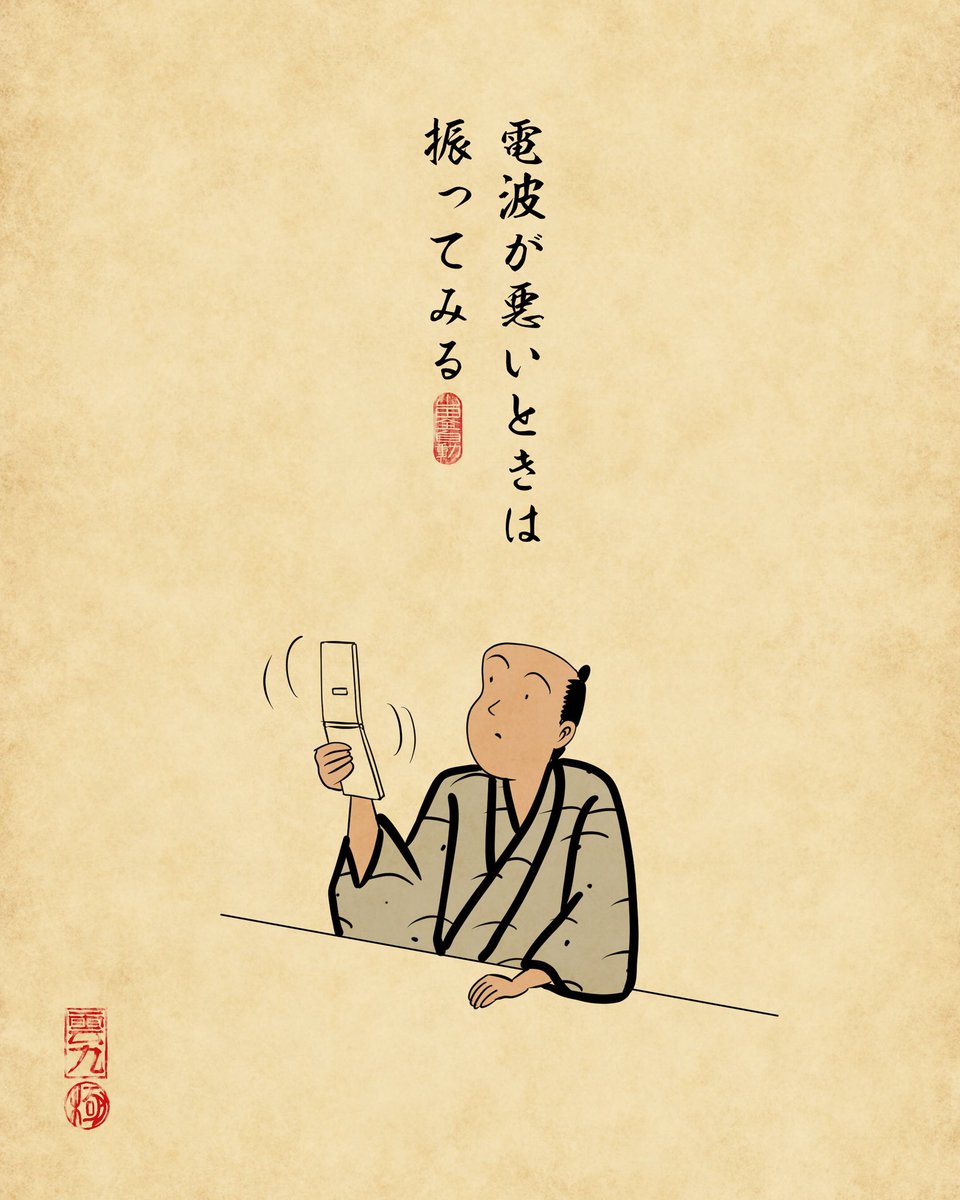 電波が悪いときは
振ってみる